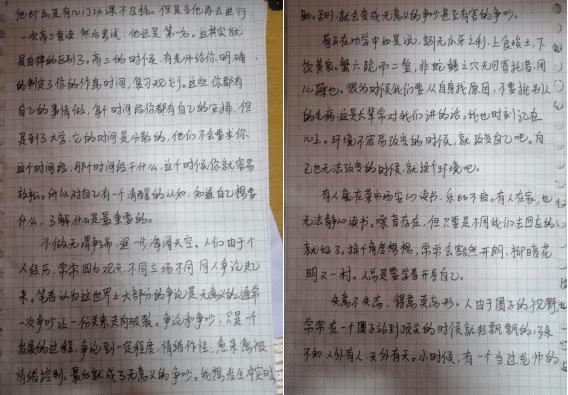 他却马是有几门功课不及格。但是当他再去进行
一次高三复读然后考试，他还是第一。这其实就
是自律的区别了。高三的时候，有老师给你，明确
的制定了你的作息时间，复习规划。这些你都有
自己的事情做，每个时间段你都有自己的安排。但
是到了大学，它的时间是分散的，他们不会要求你
这个时间段，那个时间段干什么，这个时候你就容易
放松。所以对自己有一个清醒的认知，知道自己想要
什么，了解什么是最重要的。
不做无谓争端，退一步海阔天空。人们由于个
人经历，常常因为观点，不同立场不同同人争论起
来。笔者认为这世界上大部分的争论是无意义的通常
一次争吵让一份关系走向破裂。争论和争吵，只是一个
发展的过程，争论到一定程度，情绪作怪，愈来愈被
情绪控制。最后就成了无意义的争吵。我想发生冲突时
的。否则就会变成无意义的争吵甚至有害的争吵。
荀子在劝学中如是说，蚓无爪牙之利，上食埃土，下
饮黄泉。蟹六跪而二螯，非蛇鳝之穴无可寄托者，用
心躁也。很多时候我们要从自身找原因，不要挑别人
的毛病，这是长辈常对我们讲的话，我也时刻记在
心上。环境不容易改变的时候，就改变自己吧。自
己也无法改变的时候，就换个环境吧。
有人能在菜市场安心读书，乐此不疲。有人在家，也
无法静心读书。噪音存在，但只要是不同我们去回应的
就好了。换个角度想想，常常会豁然开朗，柳暗花
明又一村。人总是要学着开导自己。
失离不失态，得意莫离形。人由于圈子的视野
常常在一个圈子站到顶尖的时候就轻飘飘的，殊
不知人外有人，天外有天。小时候，有一个当过老师的